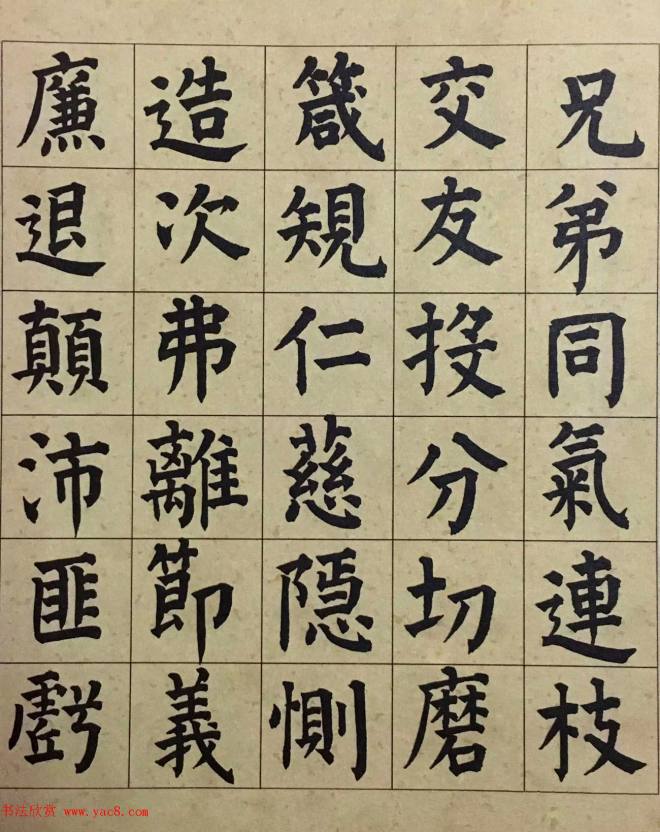 兄弟同氣連枝
交友投分切磨
箴規仁慈隱惻
造次弗離節義
廉退顛沛匪虧
书法欣赏 www.yac8.com